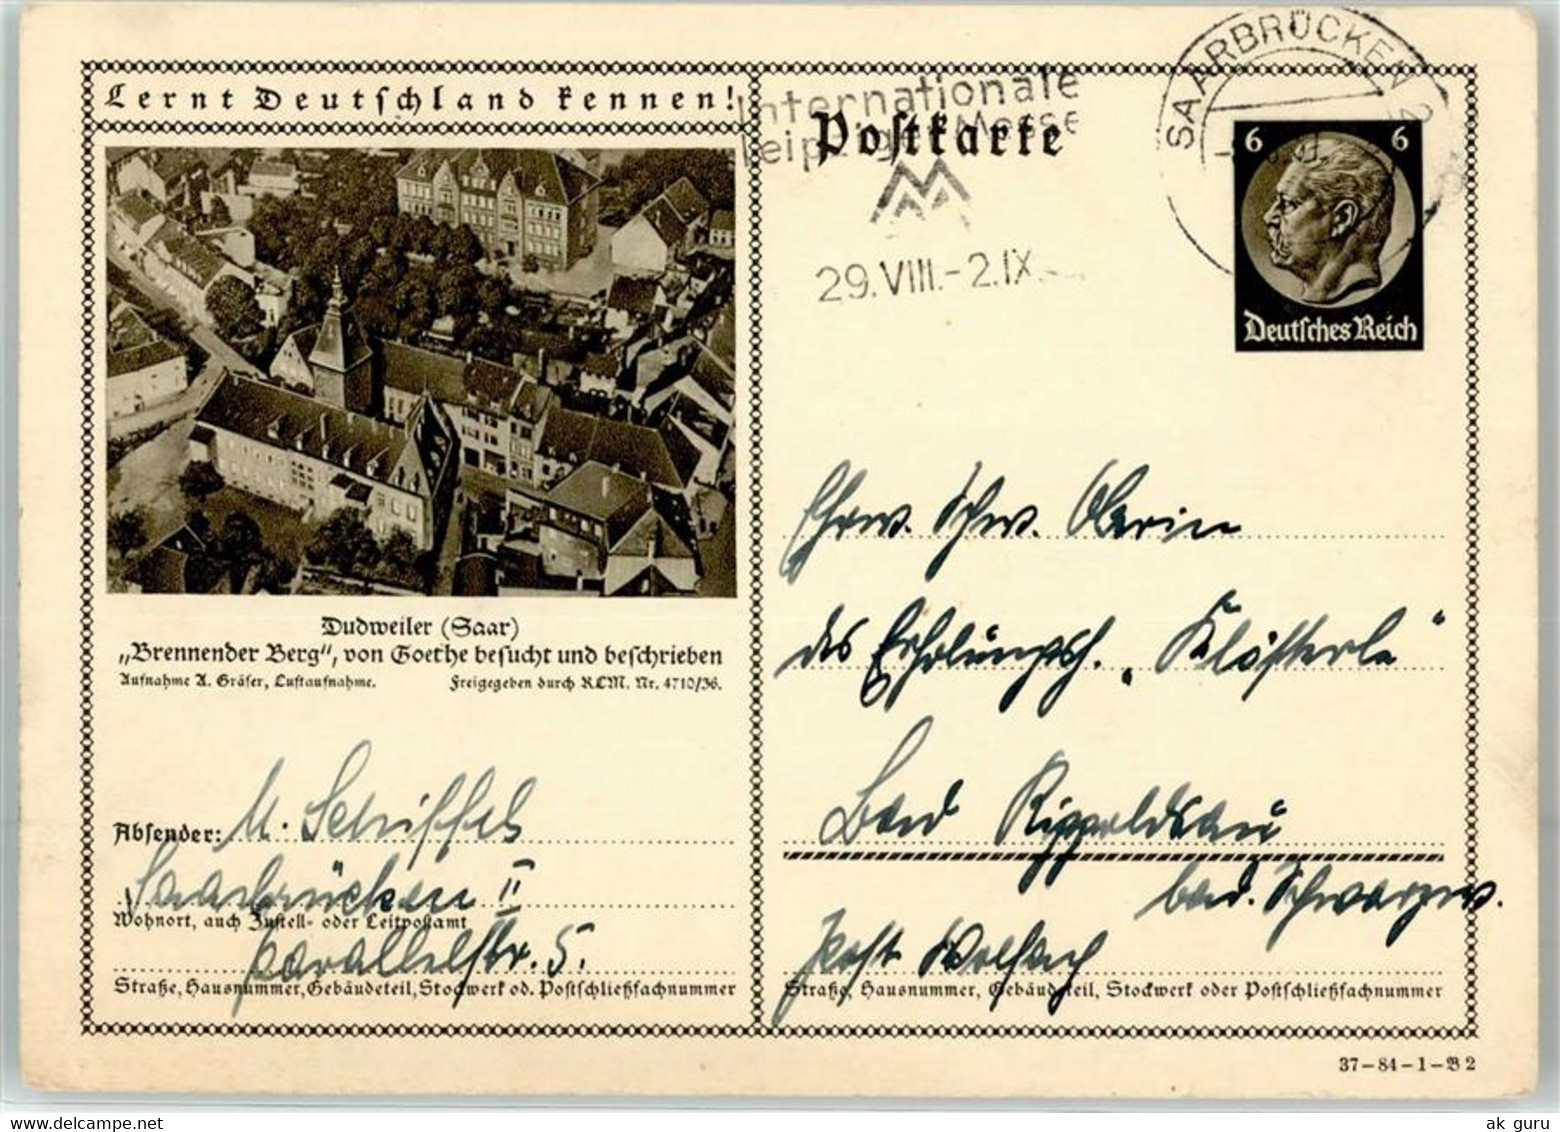 Lernt Deutschland kennen!
Internationale
Leipziger Messe
29.VIII.-2.IX.
Postkarte
SAARBRÜCKEN 2
6 6
Deutsches Reich
Dudweiler (Saar)
„Brennender Berg", von Goethe besucht und beschrieben
Aufnahme A. Gräser, Luftaufnahme. Freigegeben durch RLM. Nr. 4710/36.
Absender: M. Schiffels
Saarbrücken II
Wohnort, auch Zustell- oder Leitpostamt
Parallelstr. 5.
Straße, Hausnummer, Gebäudeteil, Stockwerk od. Postschließfachnummer
Ehrw. Schw. Oberin
des Erholungsh. „Klösterle"
Bad Rippoldsau
bad. Schwarzw.
Post Wolfach
Straße, Hausnummer, Gebäudeteil, Stockwerk oder Postschließfachnummer
37-84-1-B 2
ak guru
delcampe.net